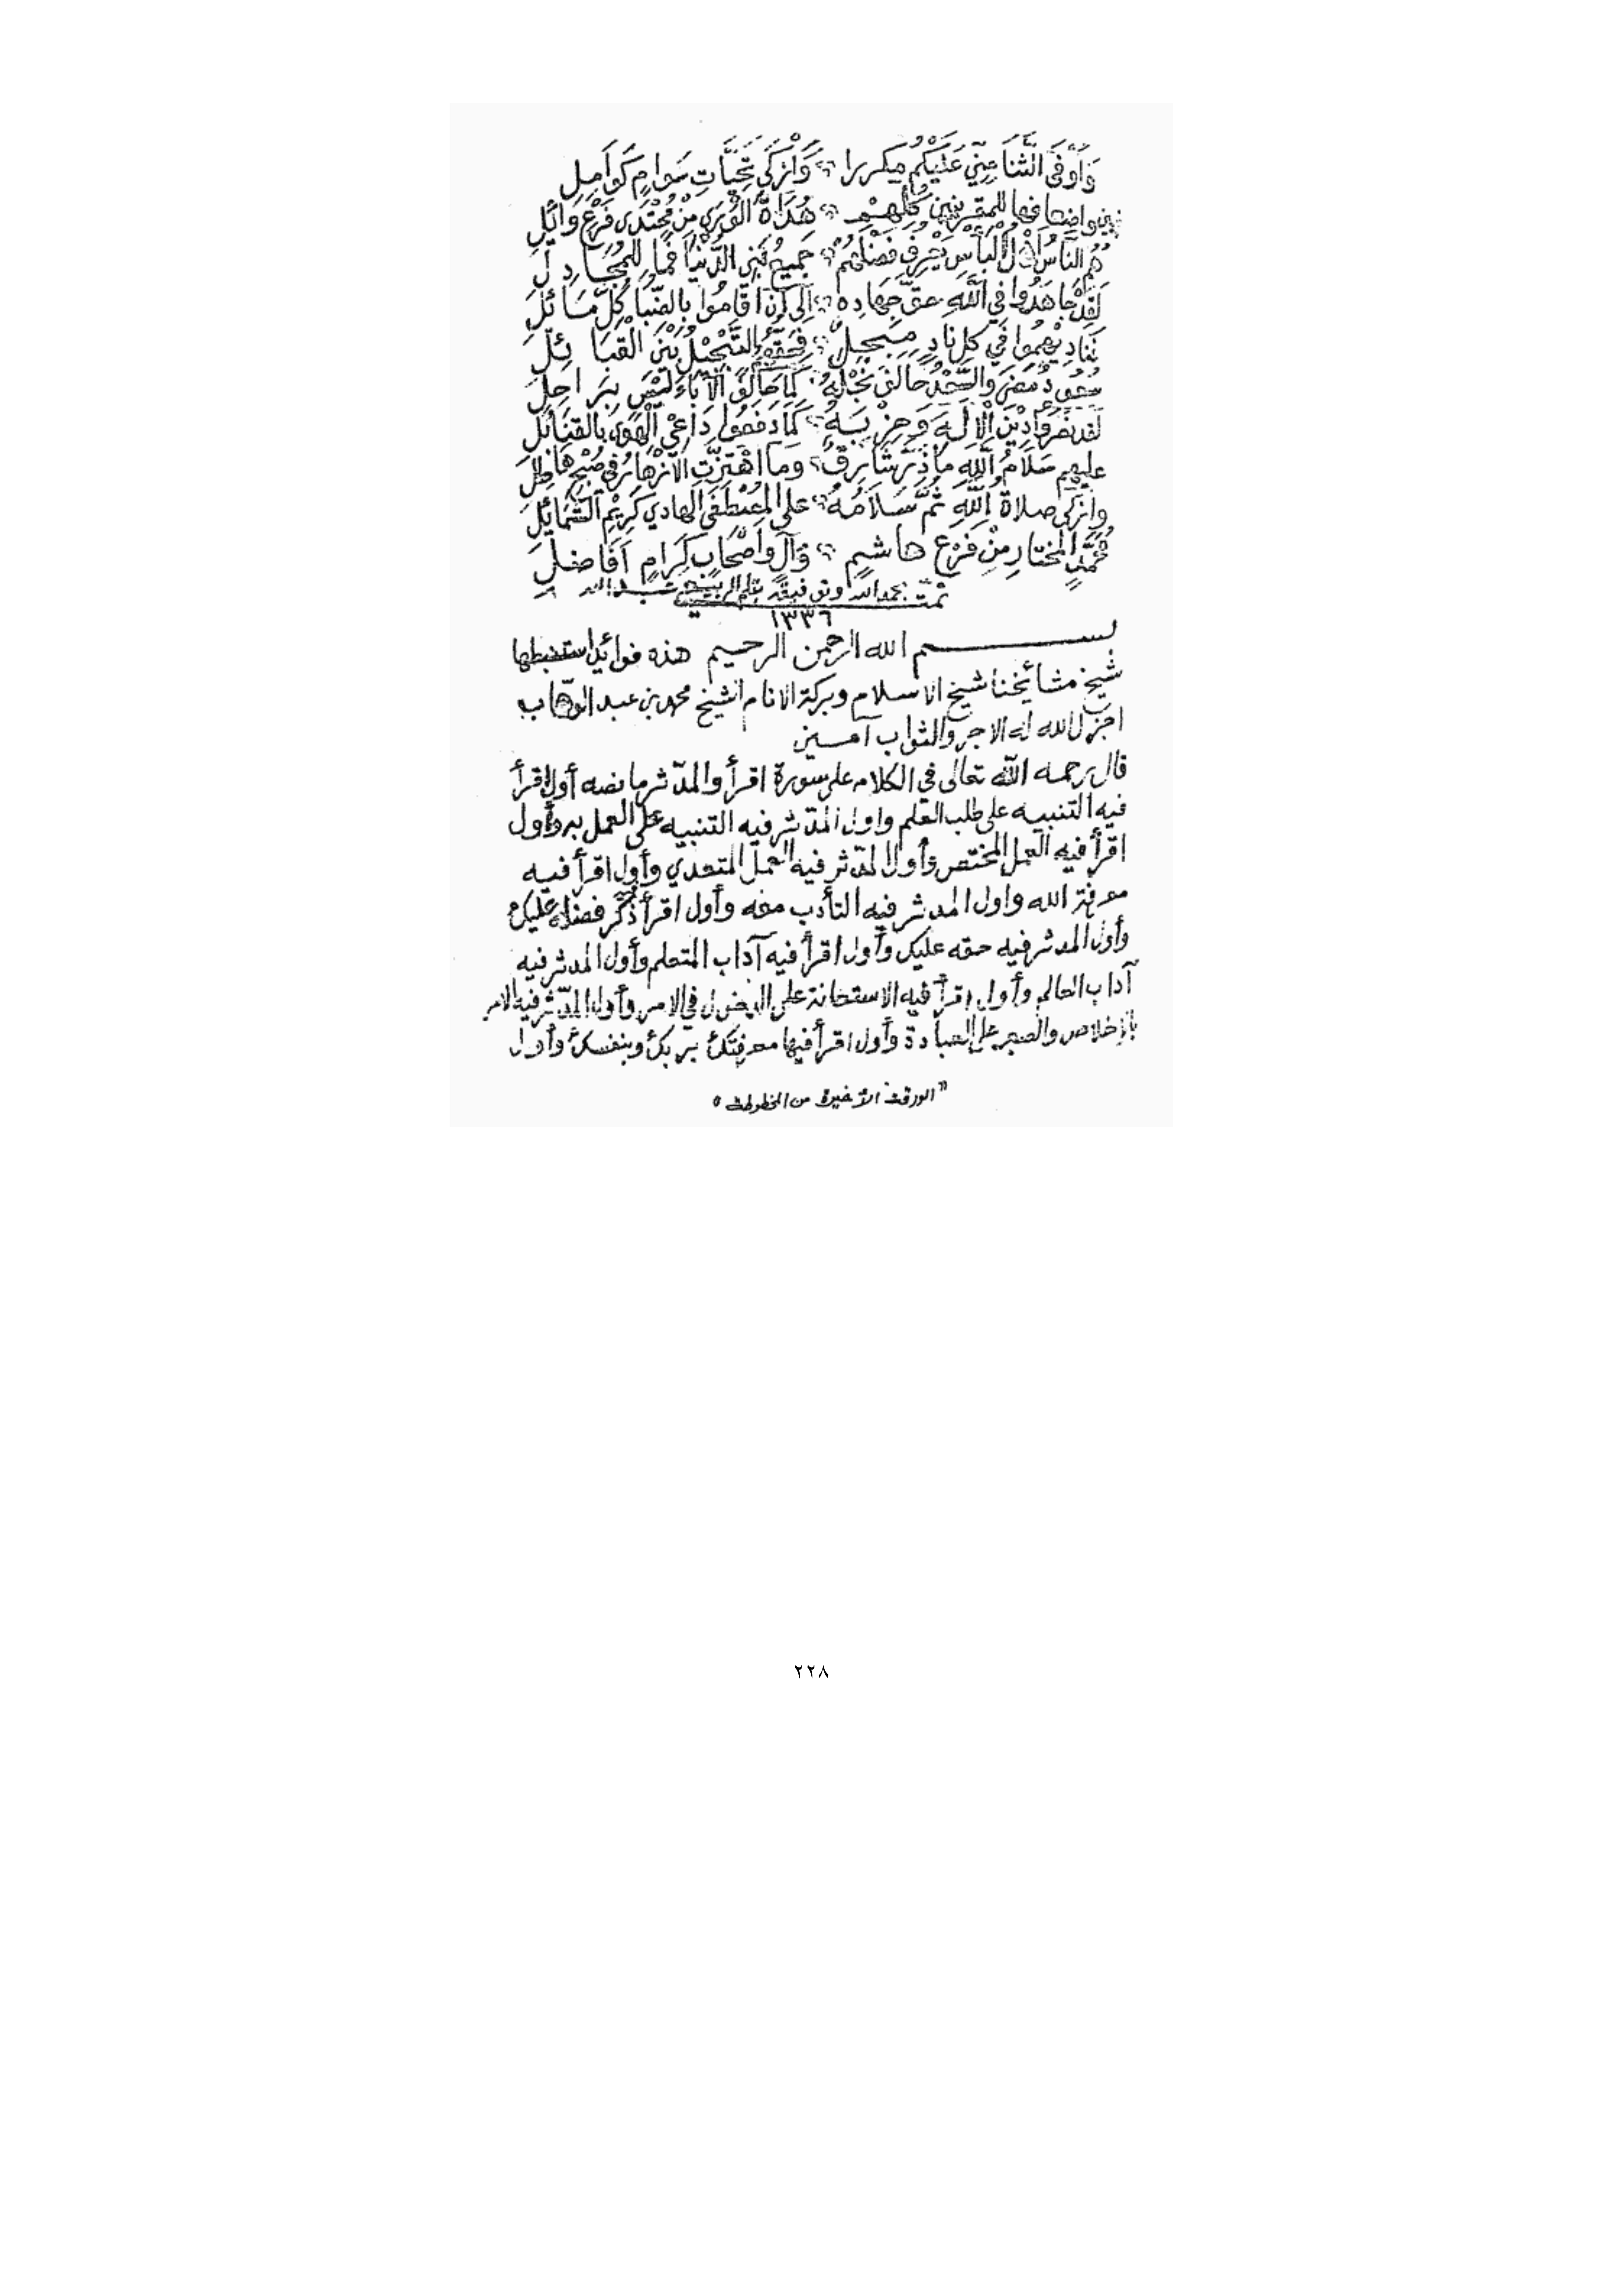 وَأَوْفَى الثَّنَا مِنِّي عَلَيْكُمُ مكررا وَأَزْكَى تَحِيَّاتٍ سَوامٍ كَوَامِلِ
كُلِّهِم هُدَاةُ الْوَرَى مِنْ مُحْتَدَى فَرْعِ وَائِلِ
هُمُ النَّاسُ أَهْلُ الْبَأْسِ يَعْرِفُ فَضْلَهُمْ جَمِيعُ بَنِي الدُّنْيَا فَمَا لِلْمُجَادِلِ
لَقَدْ جَاهَدُوا فِي اللَّهِ حَقَّ جِهَادِهِ إِلَى أَنْ أَقَامُوا بِالضُّبَا كُلَّ مَائِلِ
فِي كُلِّ نَادٍ مُبَجَّلٌ التَّبْجِيلُ بَيْنَ الْقَبَائِلِ
لَقَدْ نَصَرُوا دِيْنَ الْإِلَهِ وَحِزْبَهُ كَمَا دَفَعُوا دَاعِيَ الْهَوَى بِالْقَنَابِلِ
عليهم سَلَامُ اللَّهِ مَا ذَرَّ شَارِقٌ وَمَا اهْتَزَّتِ الْأَزْهَارُ فِي صُبْحِ هَاطِلِ
وأزكى صلاة اللَّهِ ثُمَّ سَلَامُهُ على الْمُصْطَفَى الهادي كَرِيْمِ الشَّمَائِلِ
مُحَمَّدٍ المختار مِنْ فَرْعِ هاشم وَآلٍ وَأَصْحَابٍ كِرَامٍ أَفَاضِلِ
تمت بحمد الله وتوفيقه
١٣٣٦
بسم الله الرحمن الرحيم هذه فوائد استنبطها
شيخ مشائخنا شيخ الاسلام وبركة الانام الشيخ محمد بن عبد الوهّاب
اجزل الله له الاجر والثواب آمين
قال رحمه الله تعالى في الكلام على سورة اقرأ والمدّثر ما نصه أول اقرأ
فيه التنبيه على طلب العلم واول المدّثر فيه التنبيه على العمل به وأول
اقرأ فيه العمل المختص وأول المدّثر فيه العمل المتعدي وأول اقرأ فيه
معرفة الله واول المدثر فيه التأدب معه وأول اقرأ ذكر فضله عليك
وأول المدثر فيه حقه عليك وأول اقرأ فيه آداب المتعلم وأول المدثر فيه
آداب العالم وأول اقرأ فيه الاستعانة على الدخول في الامر وأول المدّثر فيه الامر
بالإخلاص والصبر على العبادة وأول اقرأ فيها معرفتك بربك وبنفسك وأول
"الورقة الأخيرة من المخطوطة"
٢٢٨